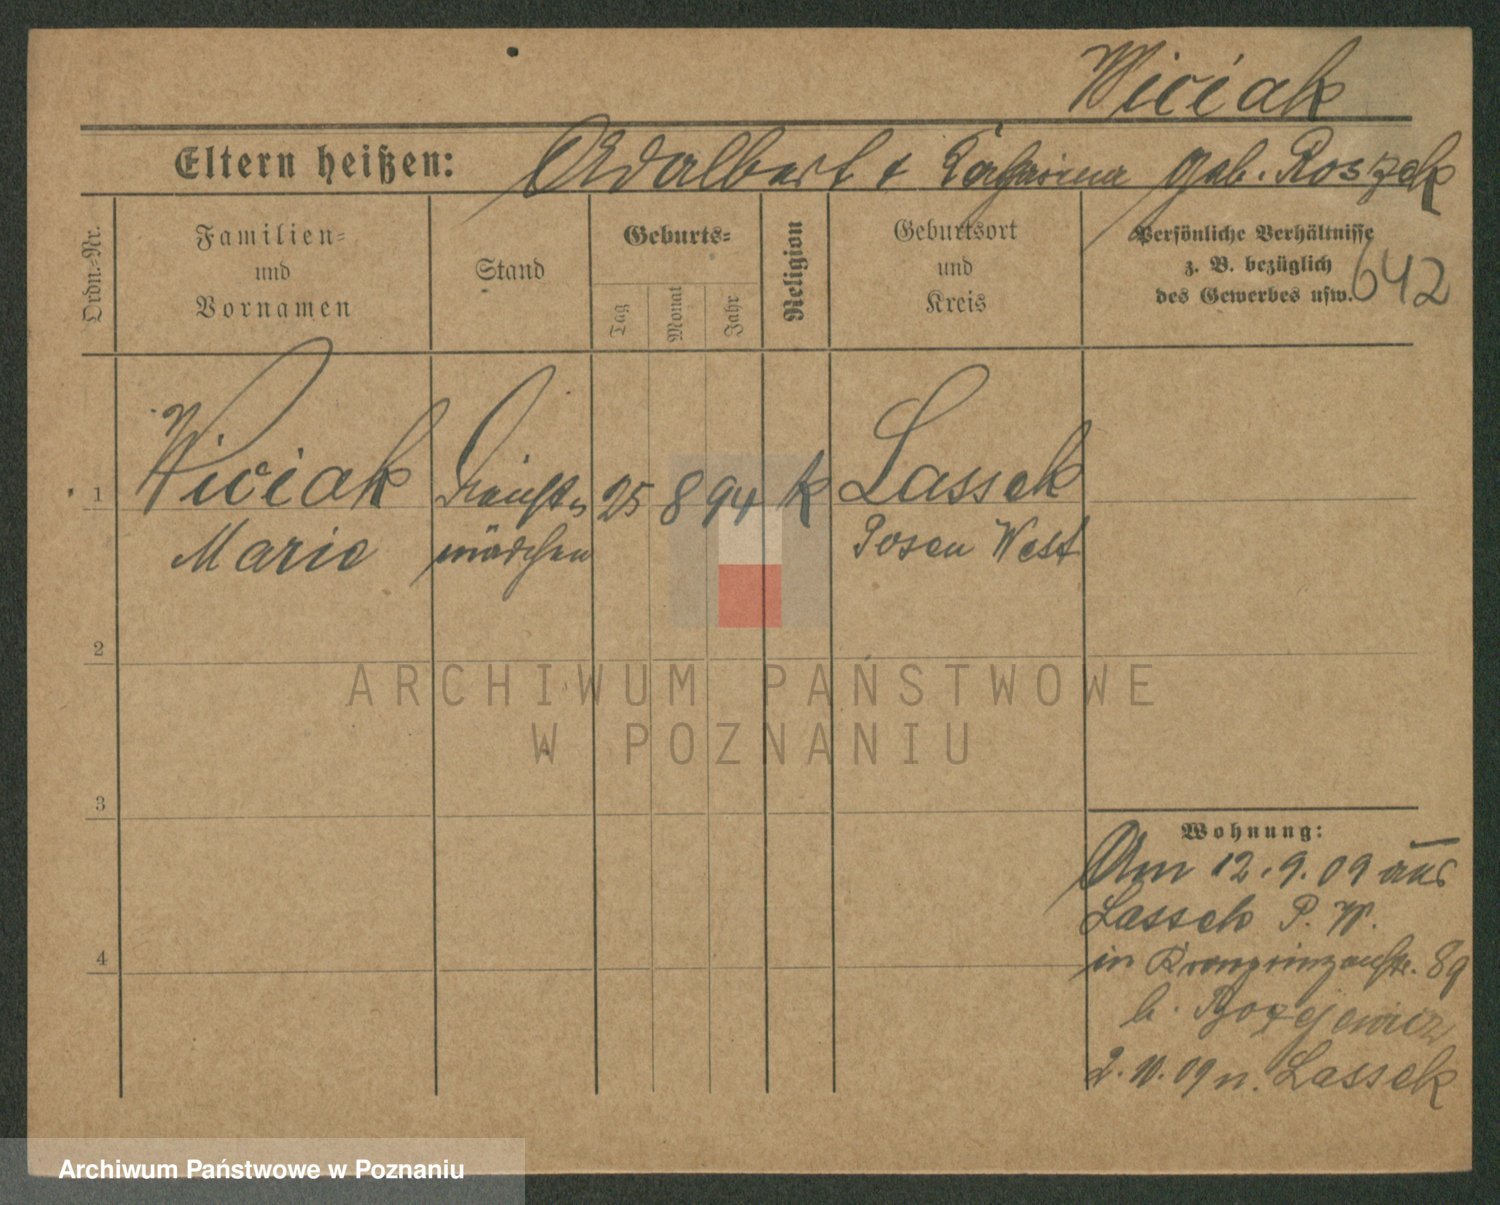 Wiciak
Eltern heißen: Adalbert + Katharina geb. Roszak
Ordn.-Nr.
Familien-
und
Vornamen
Stand
Geburts-
Tag
Monat
Jahr
Religion
Geburtsort
und
Kreis
Persönliche Verhältnisse
z. B. bezüglich
des Gewerbes usw.
642
1 Wiciak Dienst- 25 8 94 k Lassek
Marie mädchen Posen West
2
3
4
Wohnung:
Am 12.9.09 aus
Lassek P. W.
in Kronprinzenstr. 89
b.
2. 10. 09 n. Lassek
ARCHIWUM PAŃSTWOWE
W POZNANIU
Archiwum Państwowe w Poznaniu